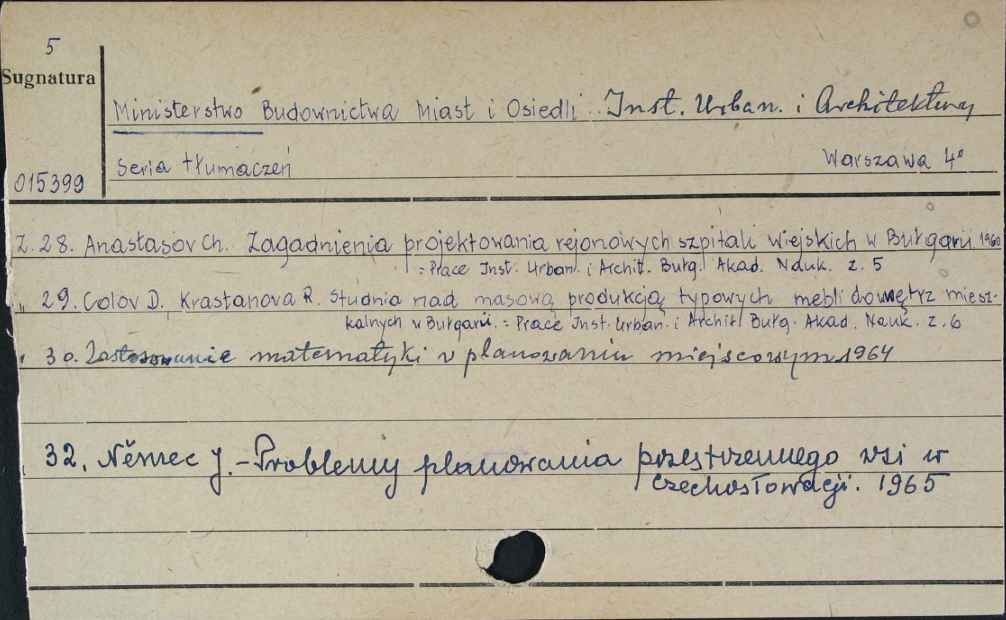 5
Sugnatura
Ministerstwo Budownictwa Miast i Osiedli. Inst. Urban. i Architektury
Seria tłumaczeń Warszawa 4°
015399
Z. 28. Anastasov Ch. Zagadnienia projektowania rejonowych szpitali wiejskich w Bułgarii 1960
= Prace Inst. Urban. i Archit. Bułg. Akad. Nauk. z. 5
" 29. Colov D., Krastanova R. Studnia nad masową produkcją typowych mebli do wnętrz miesz-
kalnych w Bułgarii. = Prace Inst. Urban. i Archit. Bułg. Akad. Nauk. z. 6
" 30. Zastosowanie matematyki w planowaniu miejscowym 1964
32. Němec J. - Problemy planowania przestrzennego wsi w
Czechosłowacji. 1965